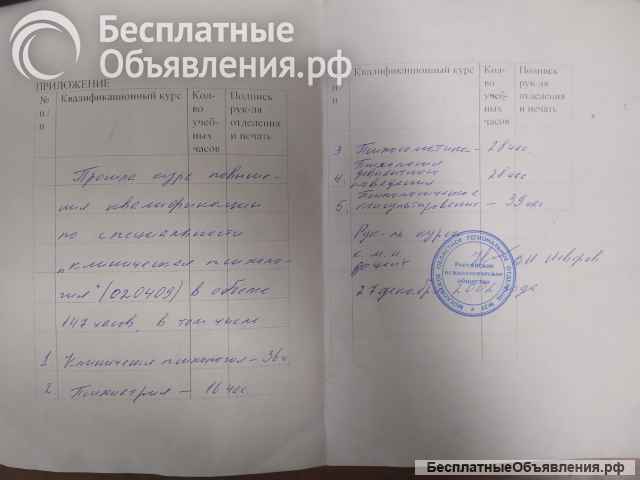 Бесплатные
Объявления.рф
ПРИЛОЖЕНИЕ
№ п/п
Квалификационный курс
Кол-во учеб-ных часов
Подпись рук-ля отделения и печать
Прошла курс повыше-
ния квалификации
по специальности
"клиническая психоло-
гия" (020409) в объеме
147 часов, в том числе
1 Клиническая психология - 36 ч
2 Психиатрия - 16 час
п/п
Квалификационный курс
Кол-во учеб-ных часов
Подпись рук-ля отделения и печать
3 Психосоматика - 28 час
4. Психология
девиантного
поведения 28 час
5. Психологическое
консультирование - 39 час
Рук-ль курса
к.м.н.
доцент
27 декабря 2002 года
МОСКОВСКОЕ ОБЛАСТНОЕ РЕГИОНАЛЬНОЕ ОТДЕЛЕНИЕ
Российское
психологическое
общество
БесплатныеОбъявления.рф